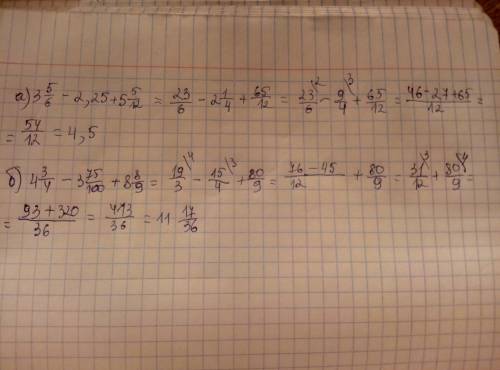 а) 3 5/6 - 2,25 + 5 5/12 = 23/6 - 2 1/4 + 65/12 = 23/6 \2 - 9/4 \3 + 65/12 = (46-27+65)/12 =
= 54/12 = 4,5
б) 4 3/4 - 3 75/100 + 8 8/9 = 19/3 \4 - 15/4 \3 + 80/9 = (76-45)/12 + 80/9 = 31/12 \3 + 80/9 \4 =
= (93+320)/36 = 413/36 = 11 17/36